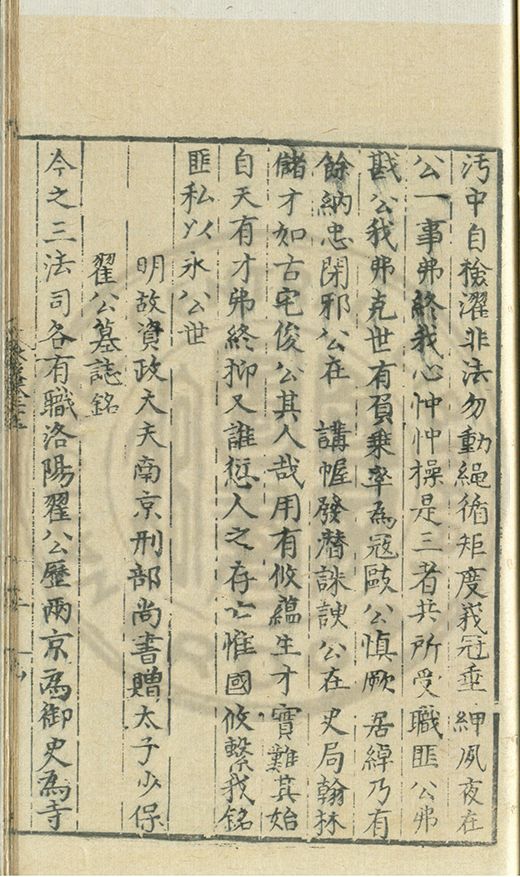 汚中自檢濯非法勿動繩循矩度峩冠垂紳夙夜在
公一事弗終我心忡忡操是三者共所受職匪公弗
戡公我弗克世有負乗率為冦敺公慎厥居綽乃有
餘納忠閉邪公在講幄發潜誅諛公在史局翰林
儲才如古宅俊公其人哉用有攸蘊生才實難其始
自天有才弗終抑又誰愆人之存亡惟國攸繋我銘
匪私以永公世
明故資政大夫南京刑部尚書贈太子少保
翟公墓誌銘
今之三法司各有職洛陽翟公歴兩京為御史為寺